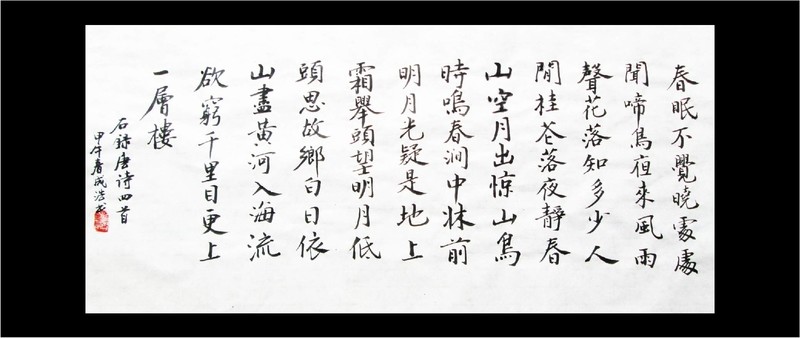 春眠不覺曉處處
聞啼鳥夜來風雨
聲花落知多少人
閒桂花落夜靜春
山空月出惊山鳥
時鳴春澗中牀前
明月光疑是地上
霜舉頭望明月低
頭思故鄉白日依
山盡黃河入海流
欲窮千里目更上
一層樓
右録唐詩四首
甲午春成浩书